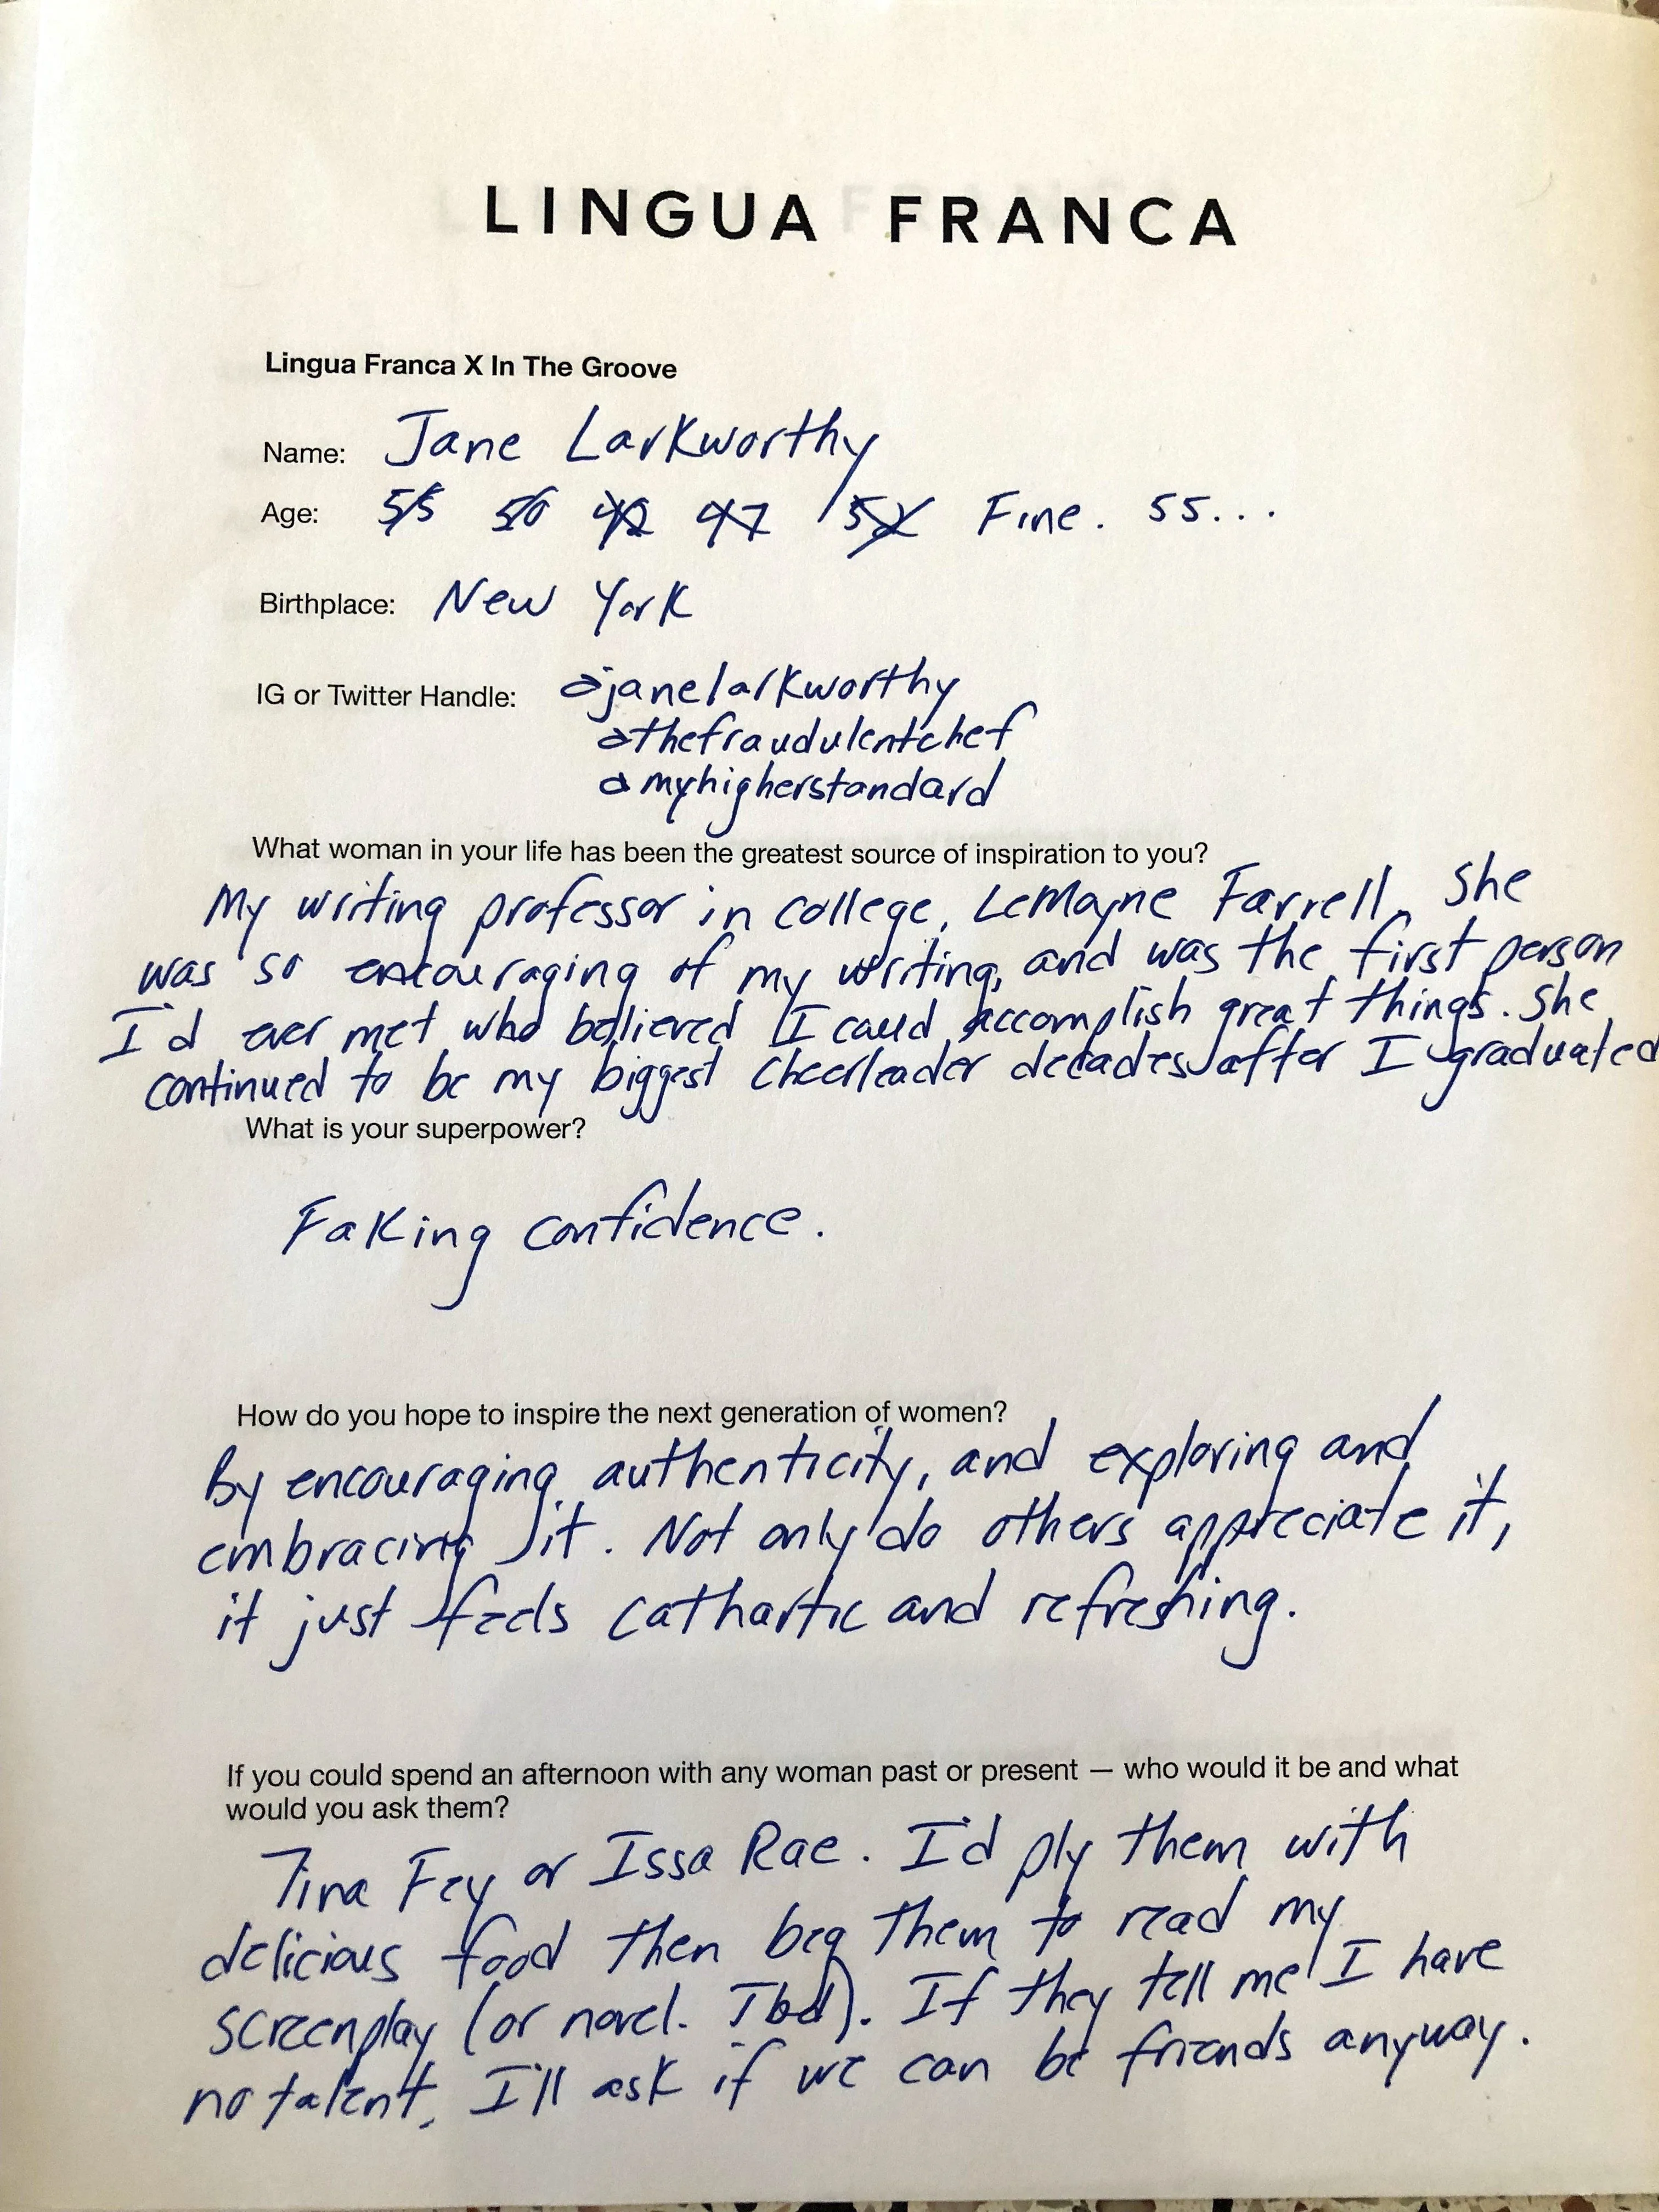 LINGUA FRANCA
Lingua Franca X In The Groove
Name: Jane Larkworthy
Age: 55 50 42 47 52 Fine. 55...
Birthplace: New York
IG or Twitter Handle: @janelarkworthy
@thefraudulentchef
@myhigherstandard
What woman in your life has been the greatest source of inspiration to you?
My writing professor in college, LeMayne Farrell. She
was so encouraging of my writing, and was the first person
I'd ever met who believed I could accomplish great things. She
continued to be my biggest cheerleader decades after I graduated
What is your superpower?
Faking confidence.
How do you hope to inspire the next generation of women?
By encouraging authenticity, and exploring and
embracing it. Not only do others appreciate it,
it just feels cathartic and refreshing.
If you could spend an afternoon with any woman past or present — who would it be and what
would you ask them?
Tina Fey or Issa Rae. I'd ply them with
delicious food then beg them to read my
screenplay (or novel. Tbd). If they tell me I have
no talent, I'll ask if we can be friends anyway.